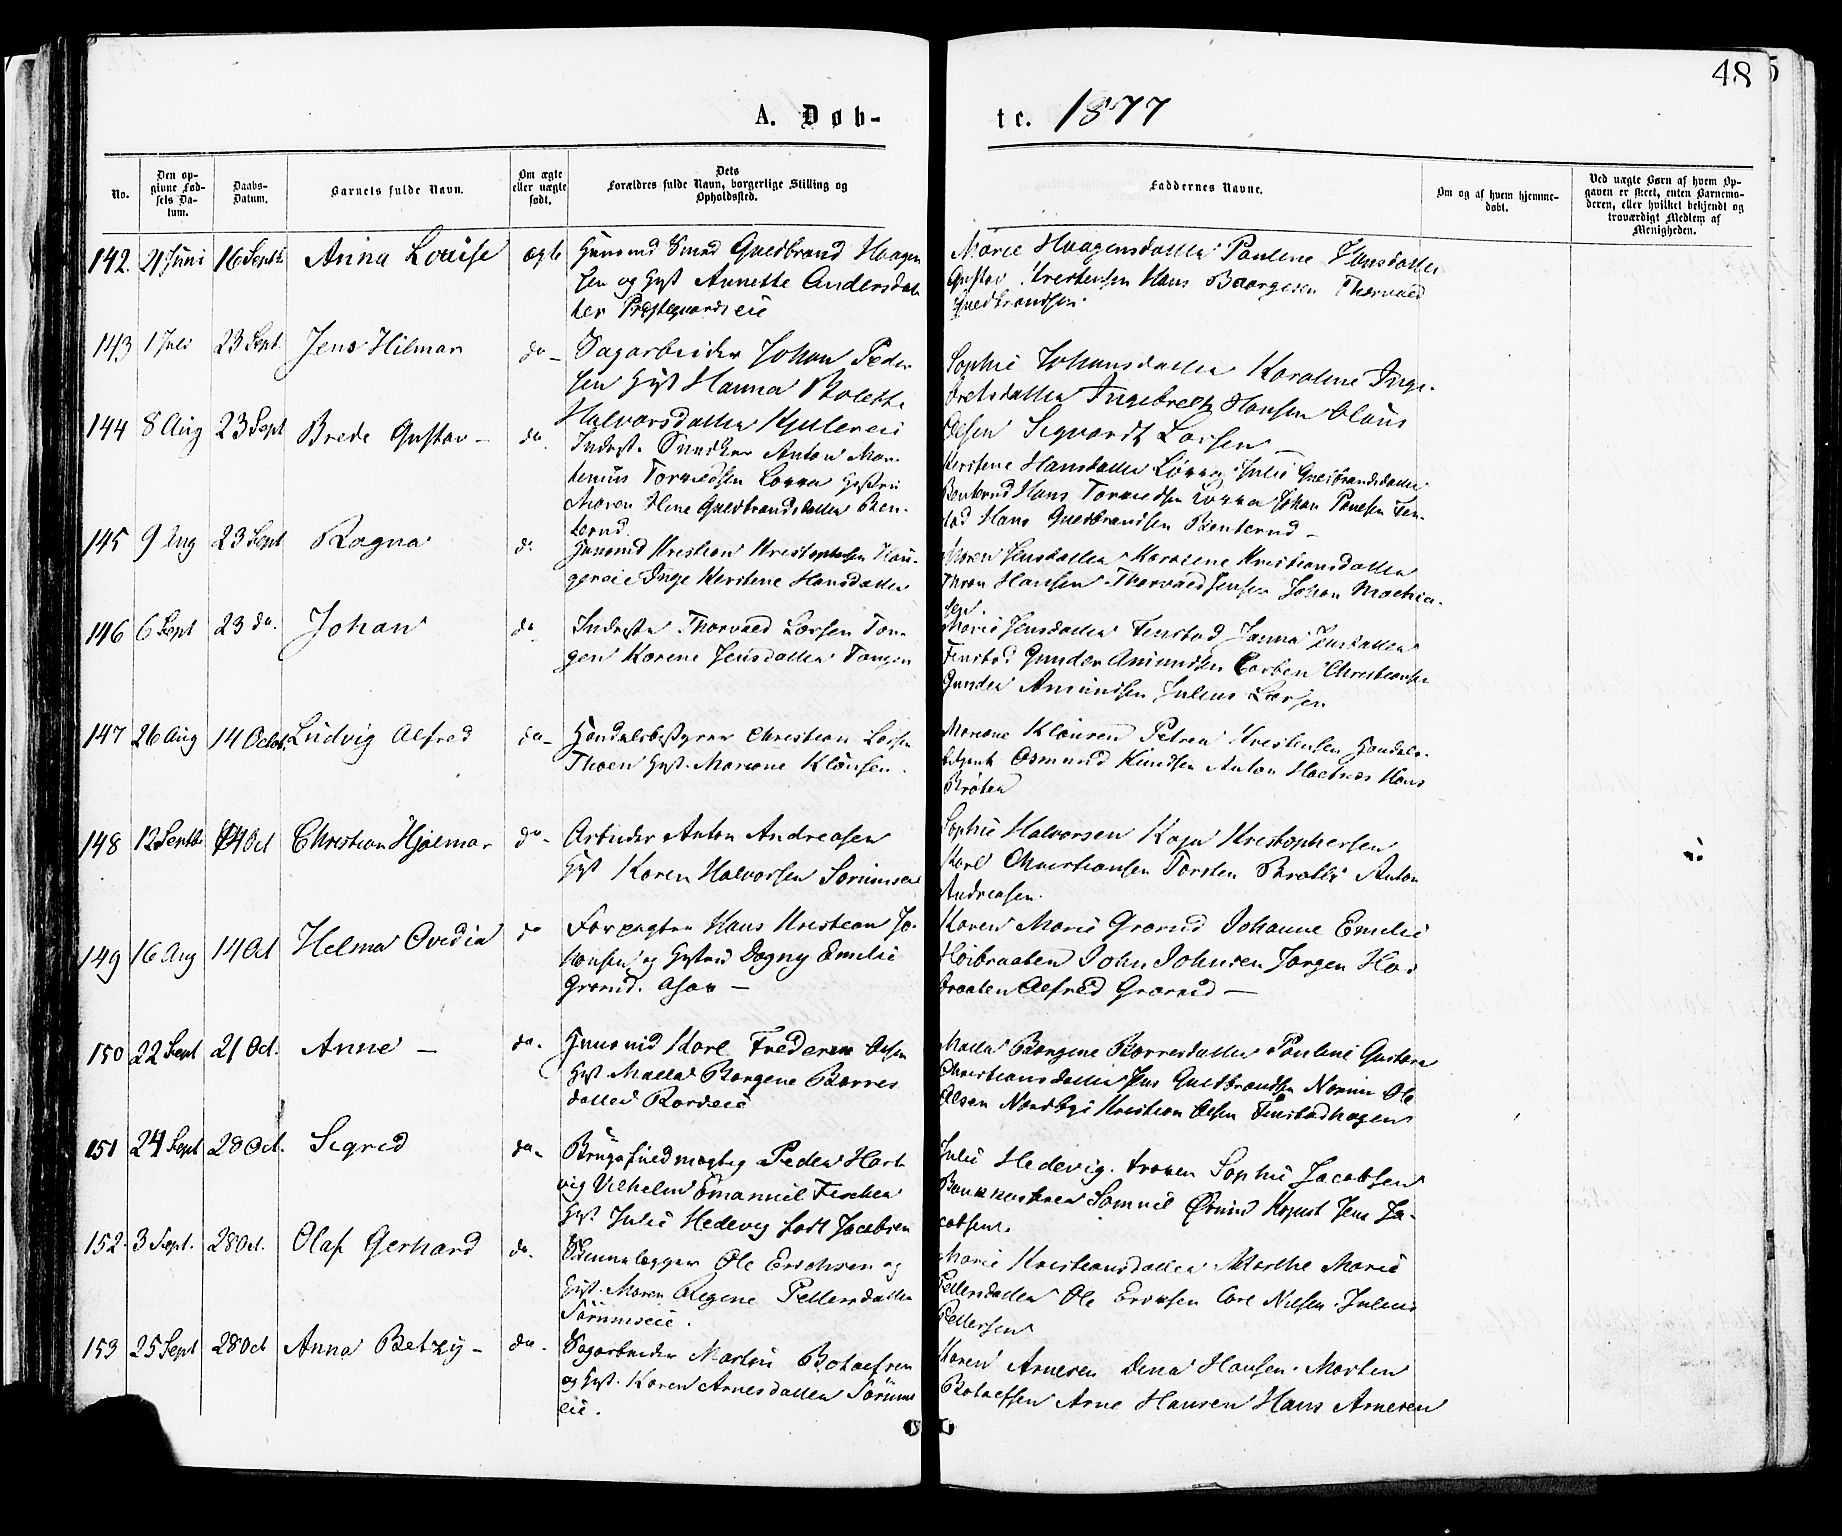 48
A. Døb-
te. 1877
No.
Den op-
givne Fød-
sels Da-
tum.
Daabs-
Datum.
Barnets fulde Navn.
Om ægte
eller uægte
født.
Dets
Forældres fulde Navn, borgerlige Stilling og
Opholdssted.
Faddernes Navne.
Om og af hvem hjemme-
døbt.
Ved uægte Børn af hvem Op-
gaven er skeet, enten Barnemo-
deren, eller hvilket bekjendt og
troværdigt Medlem af
Menigheden.
142. 21 Juni 16 Septb Anna Louise ægte Husmd Smed Guldbrand Haagen
sen og Hust Annette Andersdat
ter Præstegaardseie
Marie Haagensdatter Pauline Hansdatter
Gustav Kristensen Hans Thorvald
Guldbrandsen
143 1 Juli 23 Sept. Jens Hilmar do- Sagarbeider Johan Peder
sen Hust Hanna Bolette
Halvorsdatter
Sophie Johansdatter Karoline Inge-
bretsdatter Ingebret Hansen Olaus
Olsen Sigvardt Larsen
144 8 Aug 23 Sept Brede Gustav - do. Inderst. Snedker Anton Mar-
tinius Torvildsen Hustru
Maren Guldbrandsdatter
Kirstine Hansdatter Julie Guldbrandsdatter
Hans Torvildsen Johan Paulsen Fen-
stad Hans Guldbrandsen
145 9 Aug 23 Sept Ragna d: Husmd Kristian Kristophersen Hau-
gereie Inge Kirstine Hansdatter
Maren Jensdatter Karoline Kristiansdatter
Hansen Thorvald Jensen Johan Mathia-
sen.
146 6 Sept 23 do. Johan do Inderste Thorvald Larsen Tan-
gen Karine Jensdatter Tangen
Marie Jensdatter Fenstad Janna Jensdatter
Fenstad Gunder Amundsen Christiansen
Gunder Amundsen Julius Larsen
147 26 Aug 14 Octob. Ludvig Alfred do- Handelsbestyrer Christian Larsen
Thoen Hust. Mariane Klausen.
Mariane Klausen Petrea Kristensen Handels-
betjent Osmund Knudsen Anton Hans
Bråten
148 12 Septb 14 Oct Christian Hjalmar do- Arbeider Anton Andreasen
Hust Karen Halvorsen
Sophie Halvorsen Kaja Kristophersen
Karl Christiansen Torsten Anton
Andreasen.
149 16 Aug 14 Oct Helma Ovedia do Forpagter Hans Kristian Jo-
hansen og Hustru Dagny Emilie
Grorud. Asak -
Karen Marie Grorud Johanne Emilie
Høibraaten John Johnsen Jørgen Høi
braaten Alfred Grorud -
150 22 Sept 21 Oct. Anne - do. Husmd Karl Olsen
Hust Malla Børgine Børres
datter
Malla Børgine Børresdatter Pauline Gustava
Christiansdatter Jens Guldbrandsen Ole
Olsen Nordbye Kristian Olsen Fenstadhagen
151 24 Sept 28 Oct. Sigrid do- Brugsfuldmægtig Peder Hart
vig Vilhelm Emanuel Fischer
Hust Julie Hedevig født Jacobsen
Julie Hedevig. Sophie Jacobsen
Samuel August Jens Ja-
cobsen.
152. 3 Sept. 28 Oct. Olaf Gerhard do. Skinnelægger Ole Erichsen og
Hust. Maren Regine Pettersdatter
Sørumseie.
Marie Kristiansdatter Marthe Marie
Pettersdatter Ole Eriksen Carl Nilsen. Julius
Pettersen
153 25 Sept 28 Oct Anna Betzy - do. Sagarbeider Martin Botolfsen
og Hust. Karen Arnesdatter Sørums
eie.
Karen Arnesen Dina Hansen. Morten
Botolfsen Arne Hansen Hans Arnesen